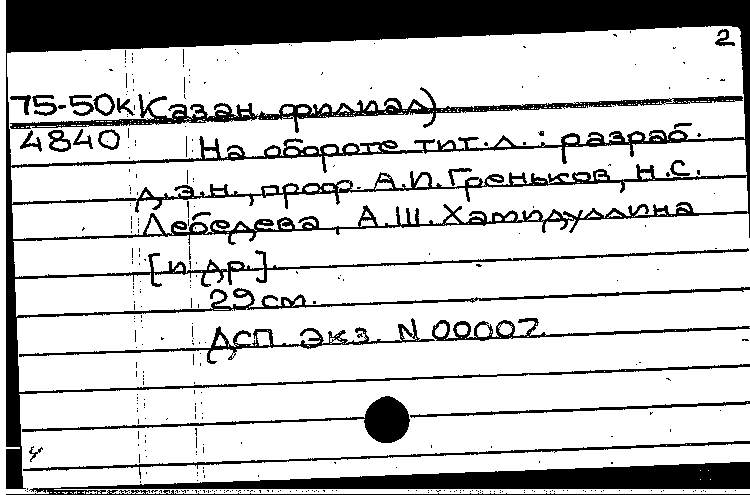 2
75-50к Казан. филиал)
4840 На обороте тит.л.: разраб.
д.э.н., проф. А.И.Греньков, Н.С.
Лебедева, А.Ш.Хамидуллина
[и др.].
29 см.
ДСП. Экз. N 00007.